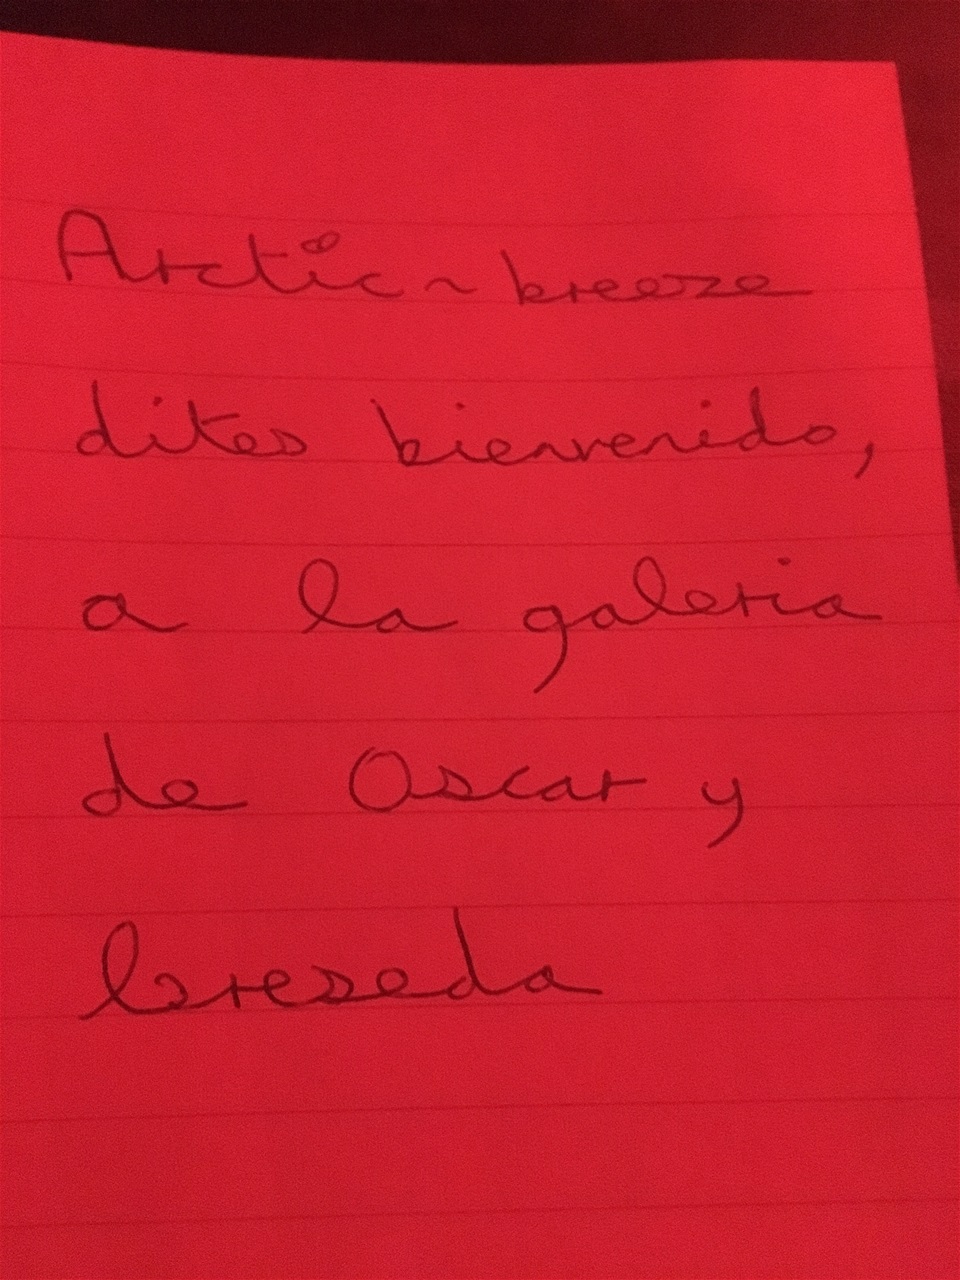 Arctic ~ breeze
dites bienvenido,
a la galeria
de Oscar y